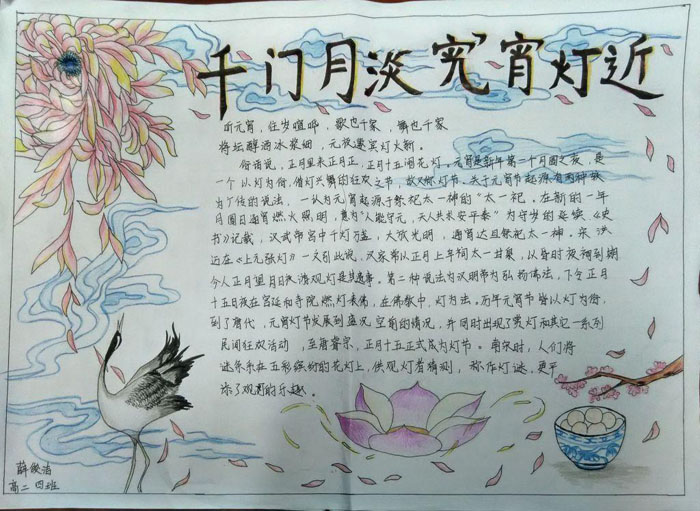 千门月淡 宵灯近
听元宵，往岁喧哗，歌也千家，舞也千家
将坛醇酒冰浆细，元夜邀宾灯火新。
俗话说，正月里来正月正，正月十五闹花灯。元宵是新年第一个月圆之夜，是
一个以灯为俗，借灯兴舞的狂欢之节，故又称灯节。关于元宵节起源有两种较
为广传的说法，一认为元宵起源于祭祀太一神的"太一祀。在新的一年
月圆日通宵燃火照明，意为"人能守元，天人共长安平泰"为守岁的延续，《史
书》记载，汉武帝宫中千灯万盏，大放光明，通宵达旦祭祀太一神。宋 洪
迈在《上元张灯》一文引此说，汉家常以正月上辛祠太一甘泉，以昏时夜祠到明
今人正月望日夜游观灯是其遗事。第二种说法为汉明帝为弘扬佛法，下令正月
十五日夜在宫廷和寺院燃灯表佛，在佛教中，灯为法，历年元宵节皆以灯为俗，
到了唐代，元宵灯节发展到盛况空前的情况，并同时出现了赏灯和其它一系列
民间狂欢活动，至唐睿宗，正月十五正式成为灯节。南宋时，人们将
谜条系在五彩缤纷的花灯上，供观灯者猜测，称作灯谜，更平
添了观赏的乐趣。
薛 洁
高二 四班